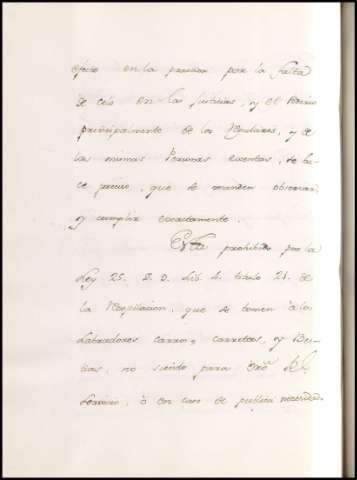 efecto en la practica por la falta
de celo en las Justicias, y el
principalmente de los Regulares, y de
las mismas Personas exentas, se ha-
ce preciso, que se manden observar
y cumplir exactamente.
Está prohibido por la
Ley 25. D. D. Lib. 4. titulo 21. de
la Recopilacion, que se tomen à los
Labradores carros, carretas, y Bes-
tias, no siendo para Nrō Rl.
Servicio, ò en caso de publica necesidad.